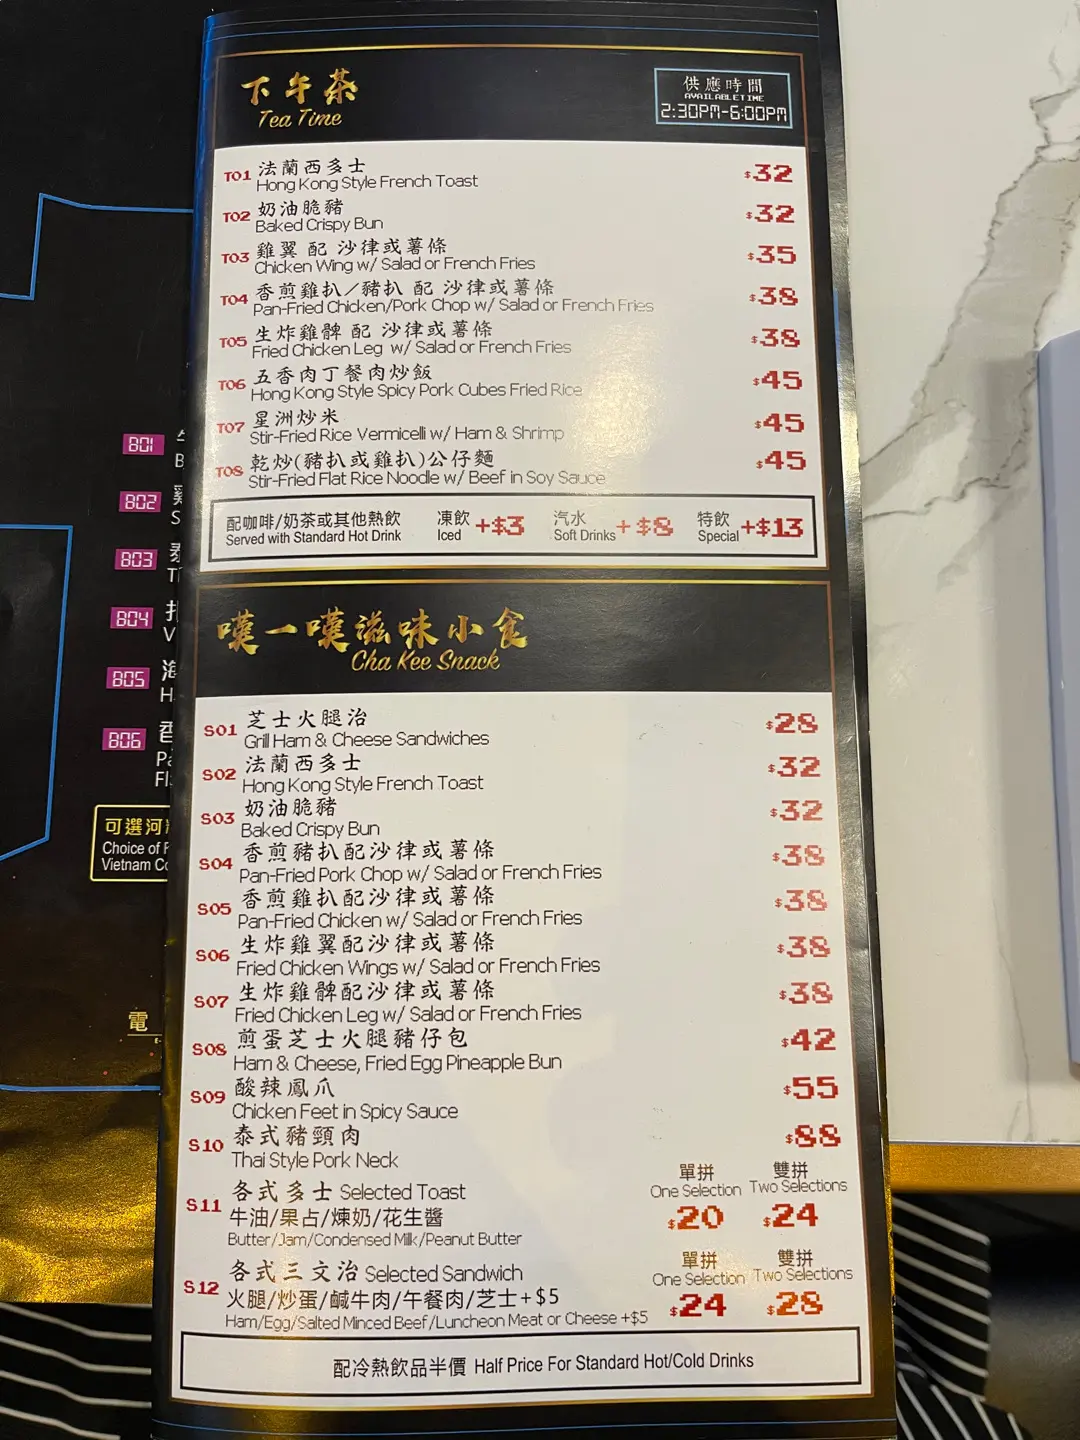 下午茶
Tea Time
供應時間
AVAILABLETIME
2:30PM-6:00PM
T01 法蘭西多士 $32
Hong Kong Style French Toast
T02 奶油脆豬 $32
Baked Crispy Bun
T03 雞翼 配 沙律或薯條 $35
Chicken Wing w/ Salad or French Fries
T04 香煎雞扒/豬扒 配 沙律或薯條 $38
Pan-Fried Chicken/Pork Chop w/ Salad or French Fries
T05 生炸雞髀 配 沙律或薯條 $38
Fried Chicken Leg w/ Salad or French Fries
T06 五香肉丁餐肉炒飯 $45
Hong Kong Style Spicy Pork Cubes Fried Rice
T07 星洲炒米 $45
Stir-Fried Rice Vermicelli w/ Ham & Shrimp
T08 乾炒(豬扒或雞扒)公仔麵 $45
Stir-Fried Flat Rice Noodle w/ Beef in Soy Sauce
配咖啡/奶茶或其他熱飲 凍飲 +$3 汽水 +$8 特飲 +$13
Served with Standard Hot Drink Iced Soft Drinks Special
嘆一嘆滋味小食
Cha Kee Snack
S01 芝士火腿治 $28
Grill Ham & Cheese Sandwiches
S02 法蘭西多士 $32
Hong Kong Style French Toast
S03 奶油脆豬 $32
Baked Crispy Bun
S04 香煎豬扒配沙律或薯條 $38
Pan-Fried Pork Chop w/ Salad or French Fries
S05 香煎雞扒配沙律或薯條 $38
Pan-Fried Chicken w/ Salad or French Fries
S06 生炸雞翼配沙律或薯條 $38
Fried Chicken Wings w/ Salad or French Fries
S07 生炸雞髀配沙律或薯條 $38
Fried Chicken Leg w/ Salad or French Fries
S08 煎蛋芝士火腿豬仔包 $42
Ham & Cheese, Fried Egg Pineapple Bun
S09 酸辣鳳爪 $55
Chicken Feet in Spicy Sauce
S10 泰式豬頸肉 $88
Thai Style Pork Neck
單拼 雙拼
One Selection Two Selections
S11 各式多士 Selected Toast $20 $24
牛油/果占/煉奶/花生醬
Butter/Jam/Condensed Milk/Peanut Butter
單拼 雙拼
One Selection Two Selections
S12 各式三文治 Selected Sandwich $24 $28
火腿/炒蛋/鹹牛肉/午餐肉/芝士+$5
Ham/Egg/Salted Minced Beef/Luncheon Meat or Cheese +$5
配冷熱飲品半價 Half Price For Standard Hot/Cold Drinks
B01
B02
B03
B04
B05
B06
可選河
Choice of
Vietnam
電